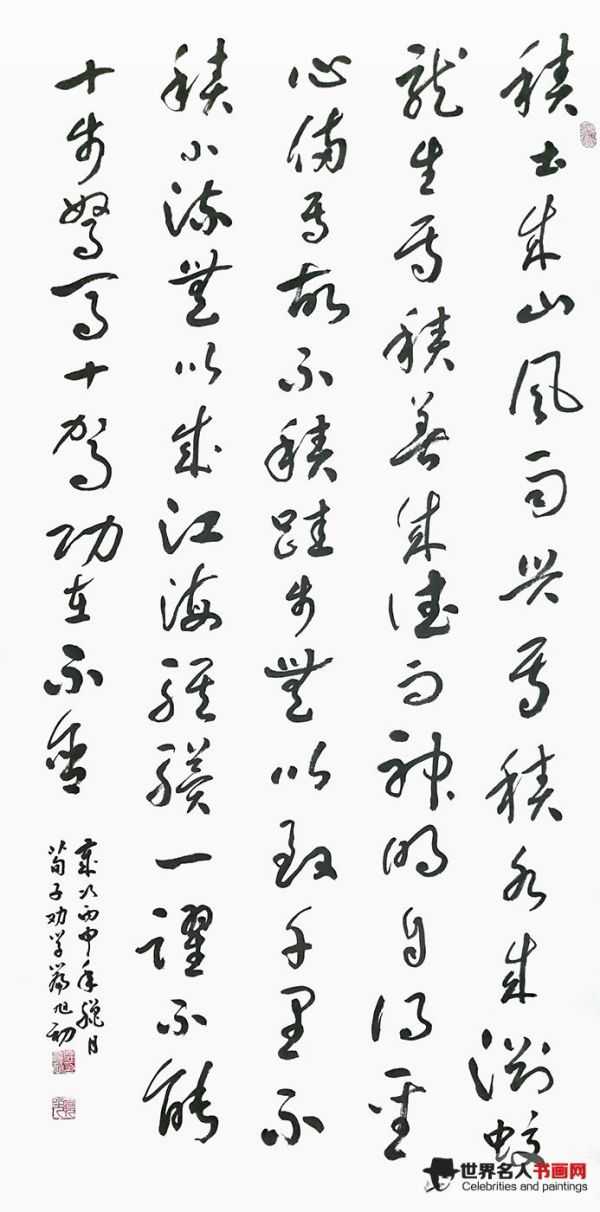 積土成山風雨興焉積水成渊蛟
龍生焉積善成德而神明自得聖
心備焉故不積跬步無以致千里不
積小流無以成江海騏驥一躍不能
十步駑馬十駕功在不舍
歲次丙申年臘月
荀子劝学篇旭初
世界名人书画网
Celebrities and paintings